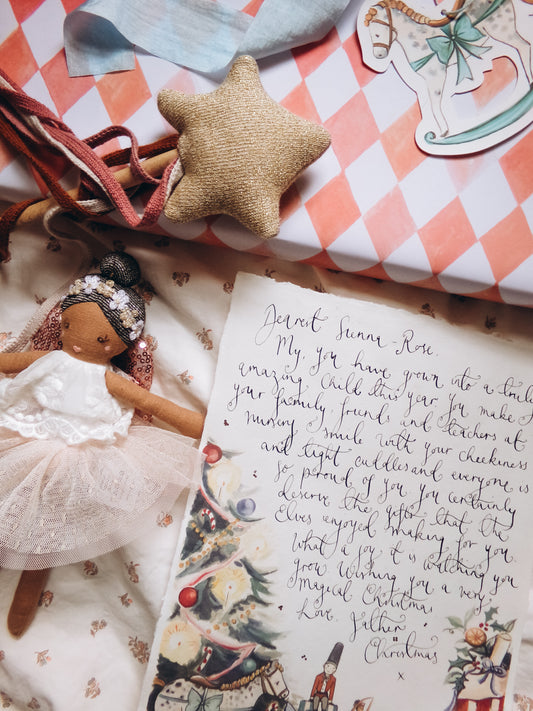 Dearest Sienna-Rose,
My, you have grown into a truly
amazing child this year. You make
your family, friends and teachers at
nursery smile with your cheekiness
and tight cuddles and everyone is
so proud of you. You certainly
deserve the gifts that the
Elves enjoyed making for you.
What a joy it is watching you
grow. Wishing you a very
Magical Christmas
Love, Father
Christmas
x